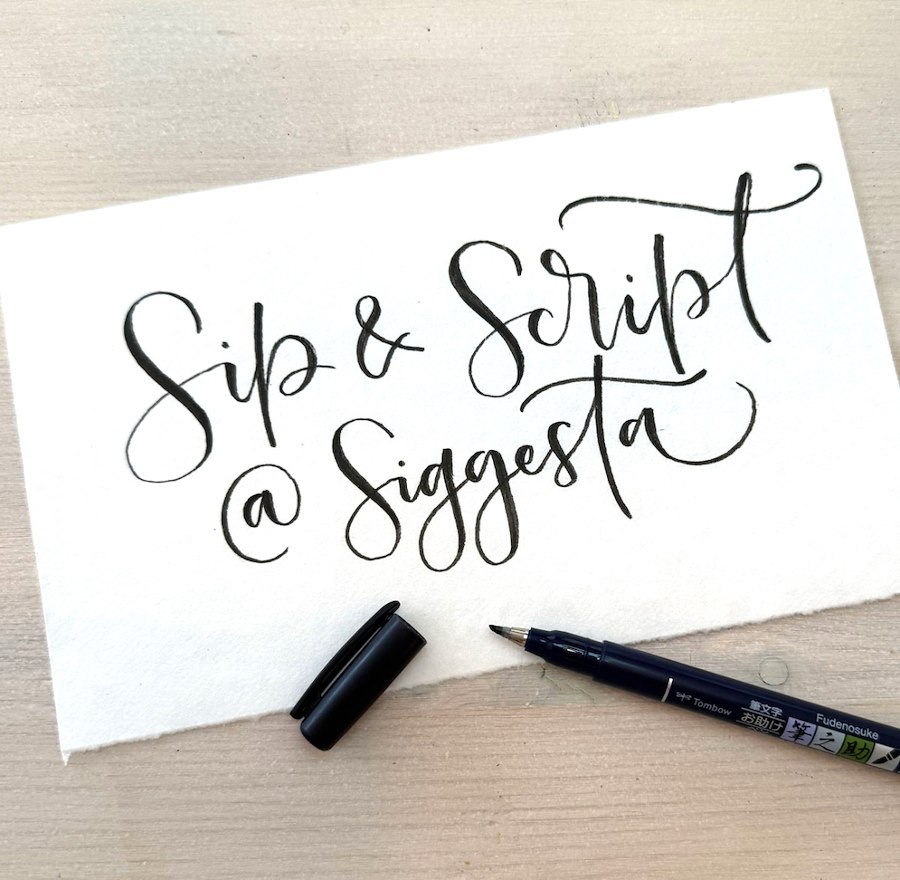 Sip & Script
@ Siggesta
Tombow
筆文字
お助け
Fudenosuke
筆之助